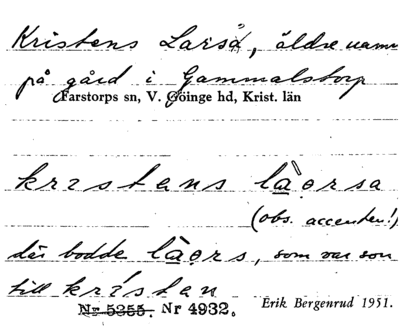 Kristens Larsa, äldre namn
på gård i Gammalstorp
Farstorps sn, V. Göinge hd, Krist. län
krɪstans là̱ǝrsa
(obs. accenten!)
där bodde là̱ǝrs, som var son
till krɪ́stan
Nr 5355. Nr 4932.
Erik Bergenrud 1951.